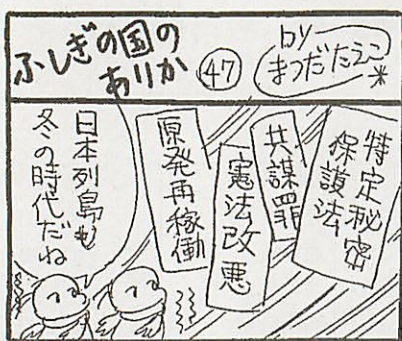 ふしぎの国の
ありか
㊼
ロリー
まつだたえこ
特定秘密
保護法
共謀罪
憲法改悪
原発再稼働
日本列島も
冬の時代だね